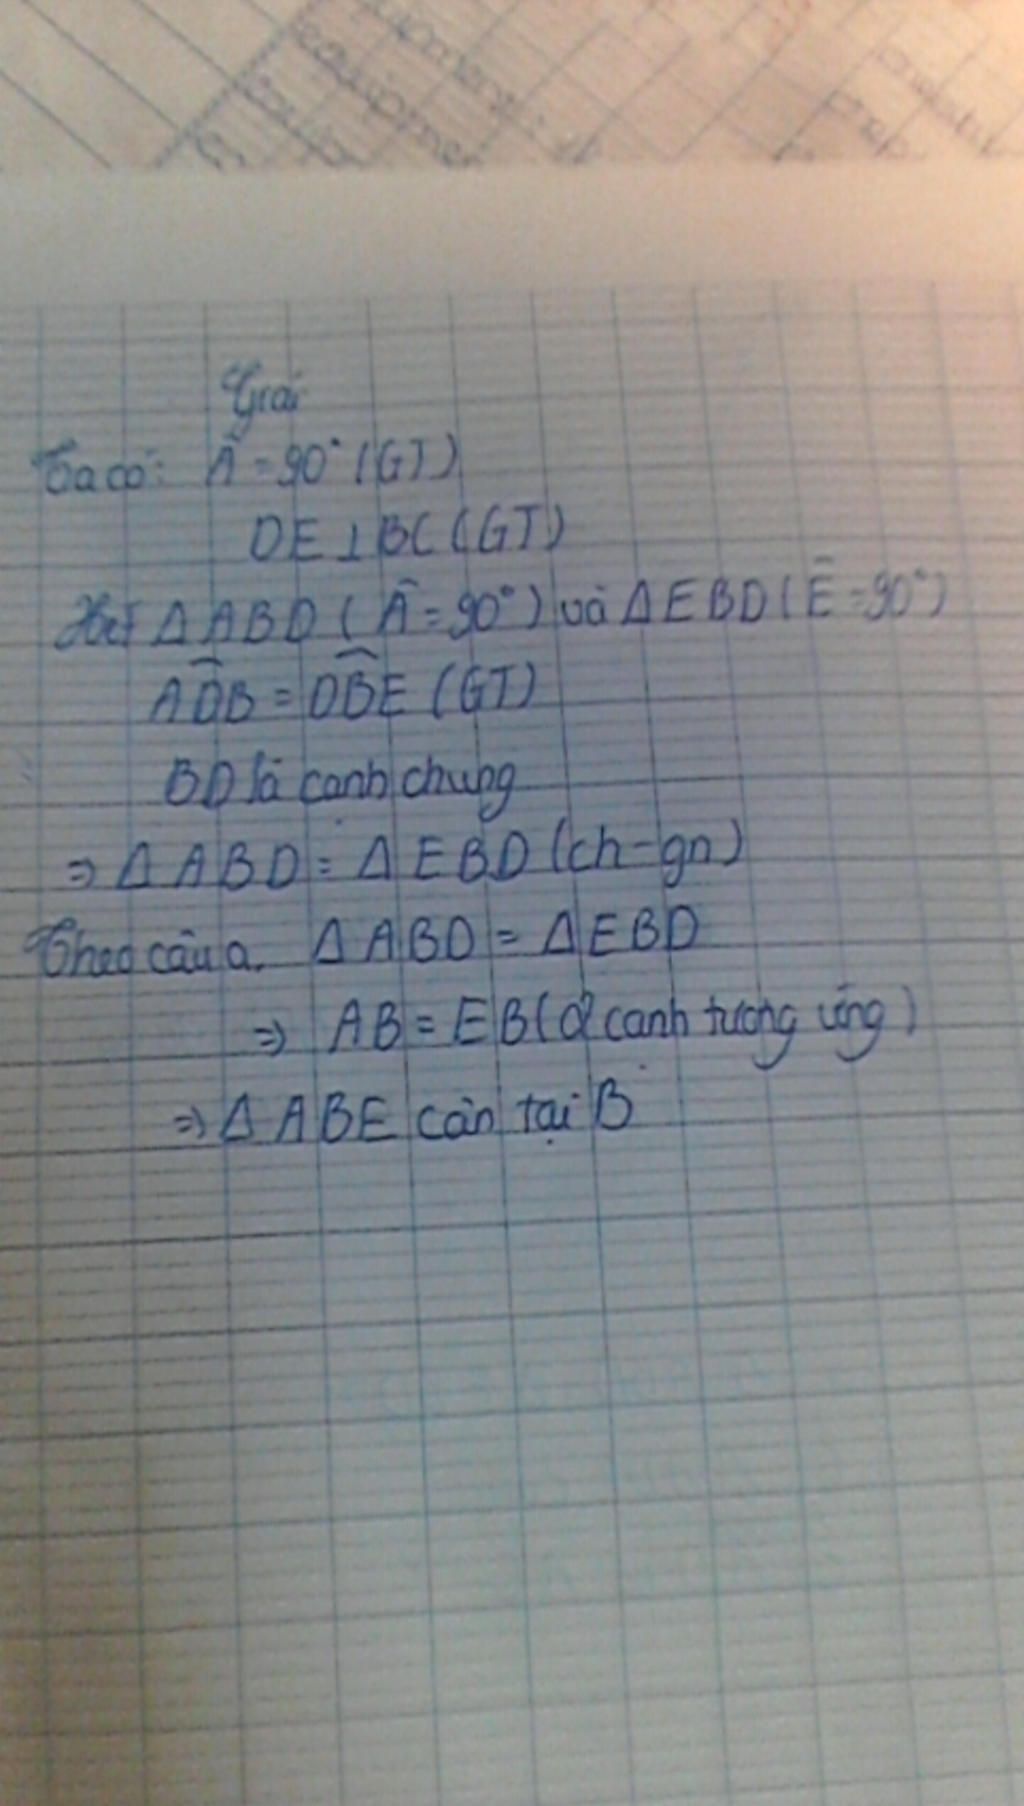 Giải
Ta có: Â = 90° (GT)
DE ⊥ BC (GT)
Xét Δ ABD ( Â = 90° ) và Δ EBD ( Ê = 90° )
ADB̂ = DBÊ (GT)
BD là cạnh chung
⇒ Δ ABD = Δ EBD (ch-gn)
Theo câu a. Δ ABD = Δ EBD
⇒ AB = EB (2 cạnh tương ứng)
⇒ Δ ABE cân tại B